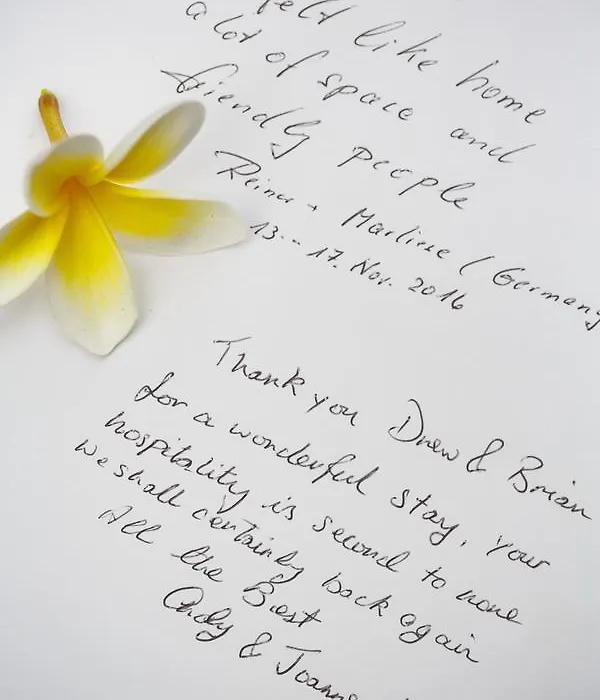 felt like home
a lot of space and
friendly people
Reiner + Marlise (Germany
13. - 17. Nov. 2016
Thank you Drew & Brian
for a wonderful stay, your
hospitality is second to none
we shall certainly back again
All the Best
Andy & Joanne